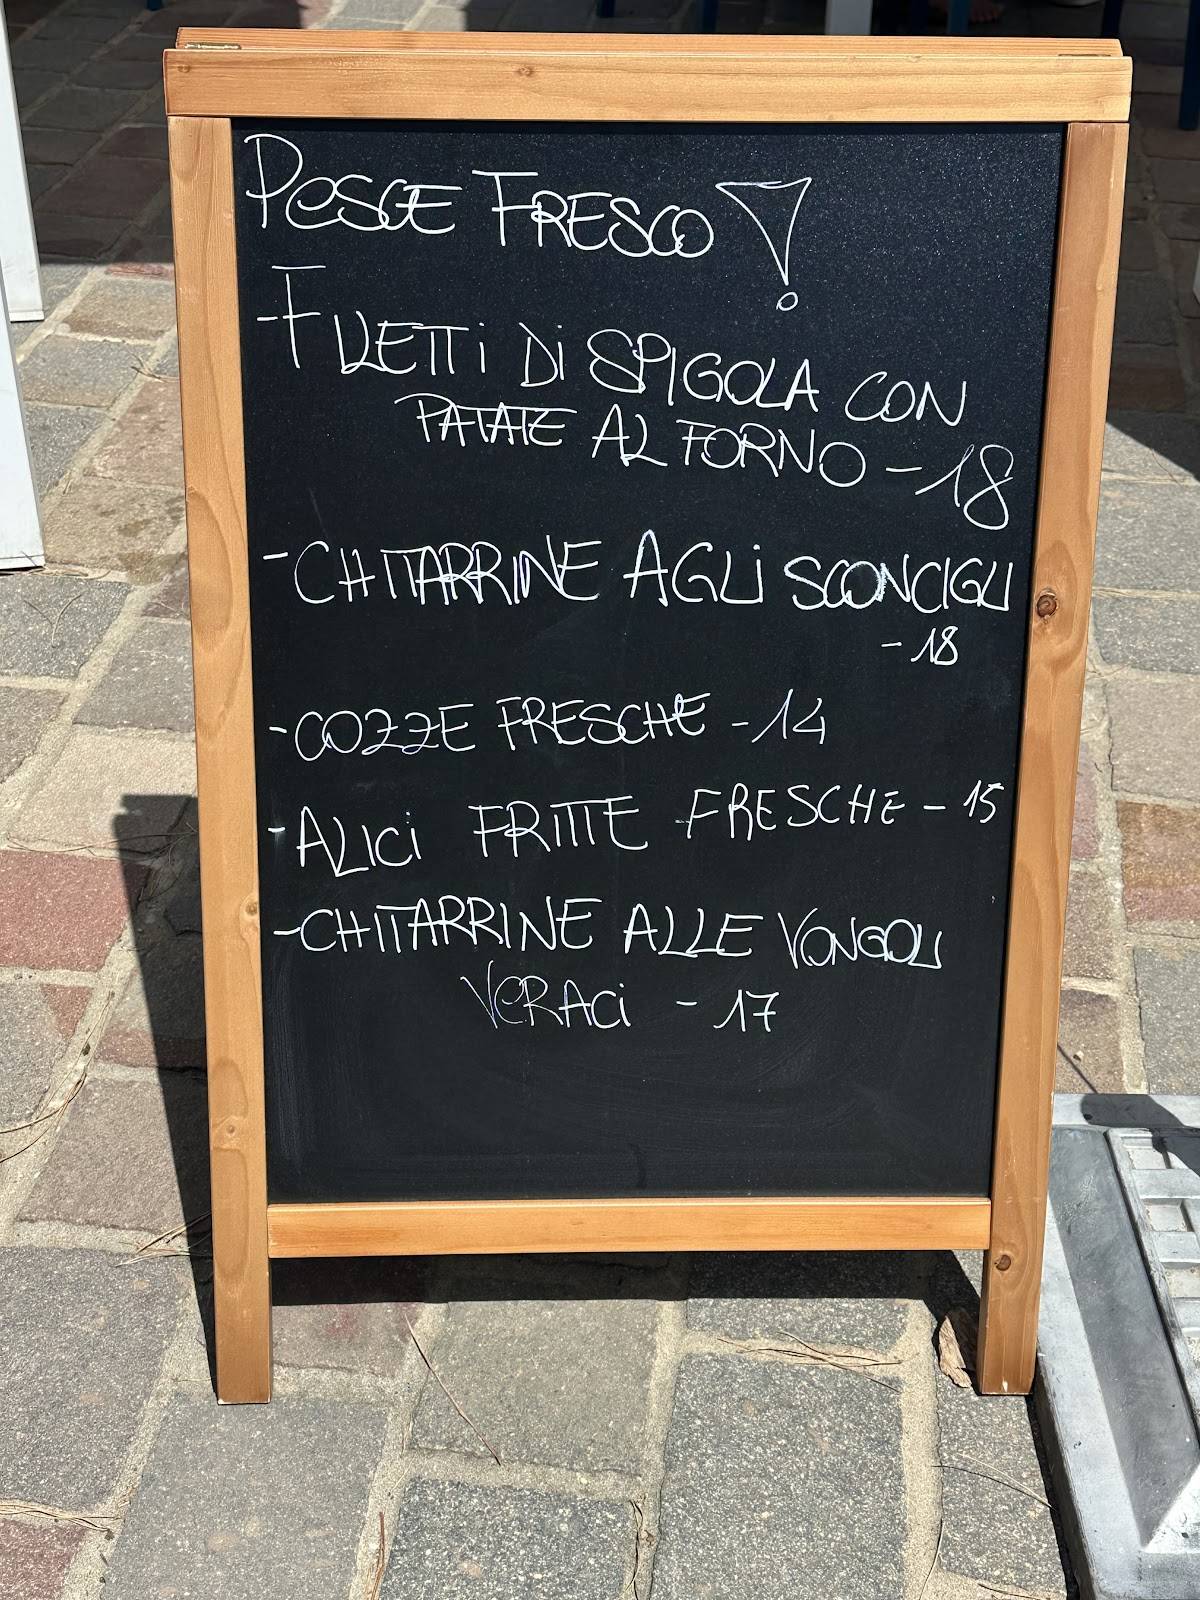 PESCE FRESCO!
- FILETTI DI SPIGOLA CON
PATATE AL FORNO - 18
- CHITARRINE AGLI SCONCIGLI
- 18
- COZZE FRESCHE - 14
- ALICI FRITTE FRESCHE - 15
- CHITARRINE ALLE VONGOLI
VERACI - 17